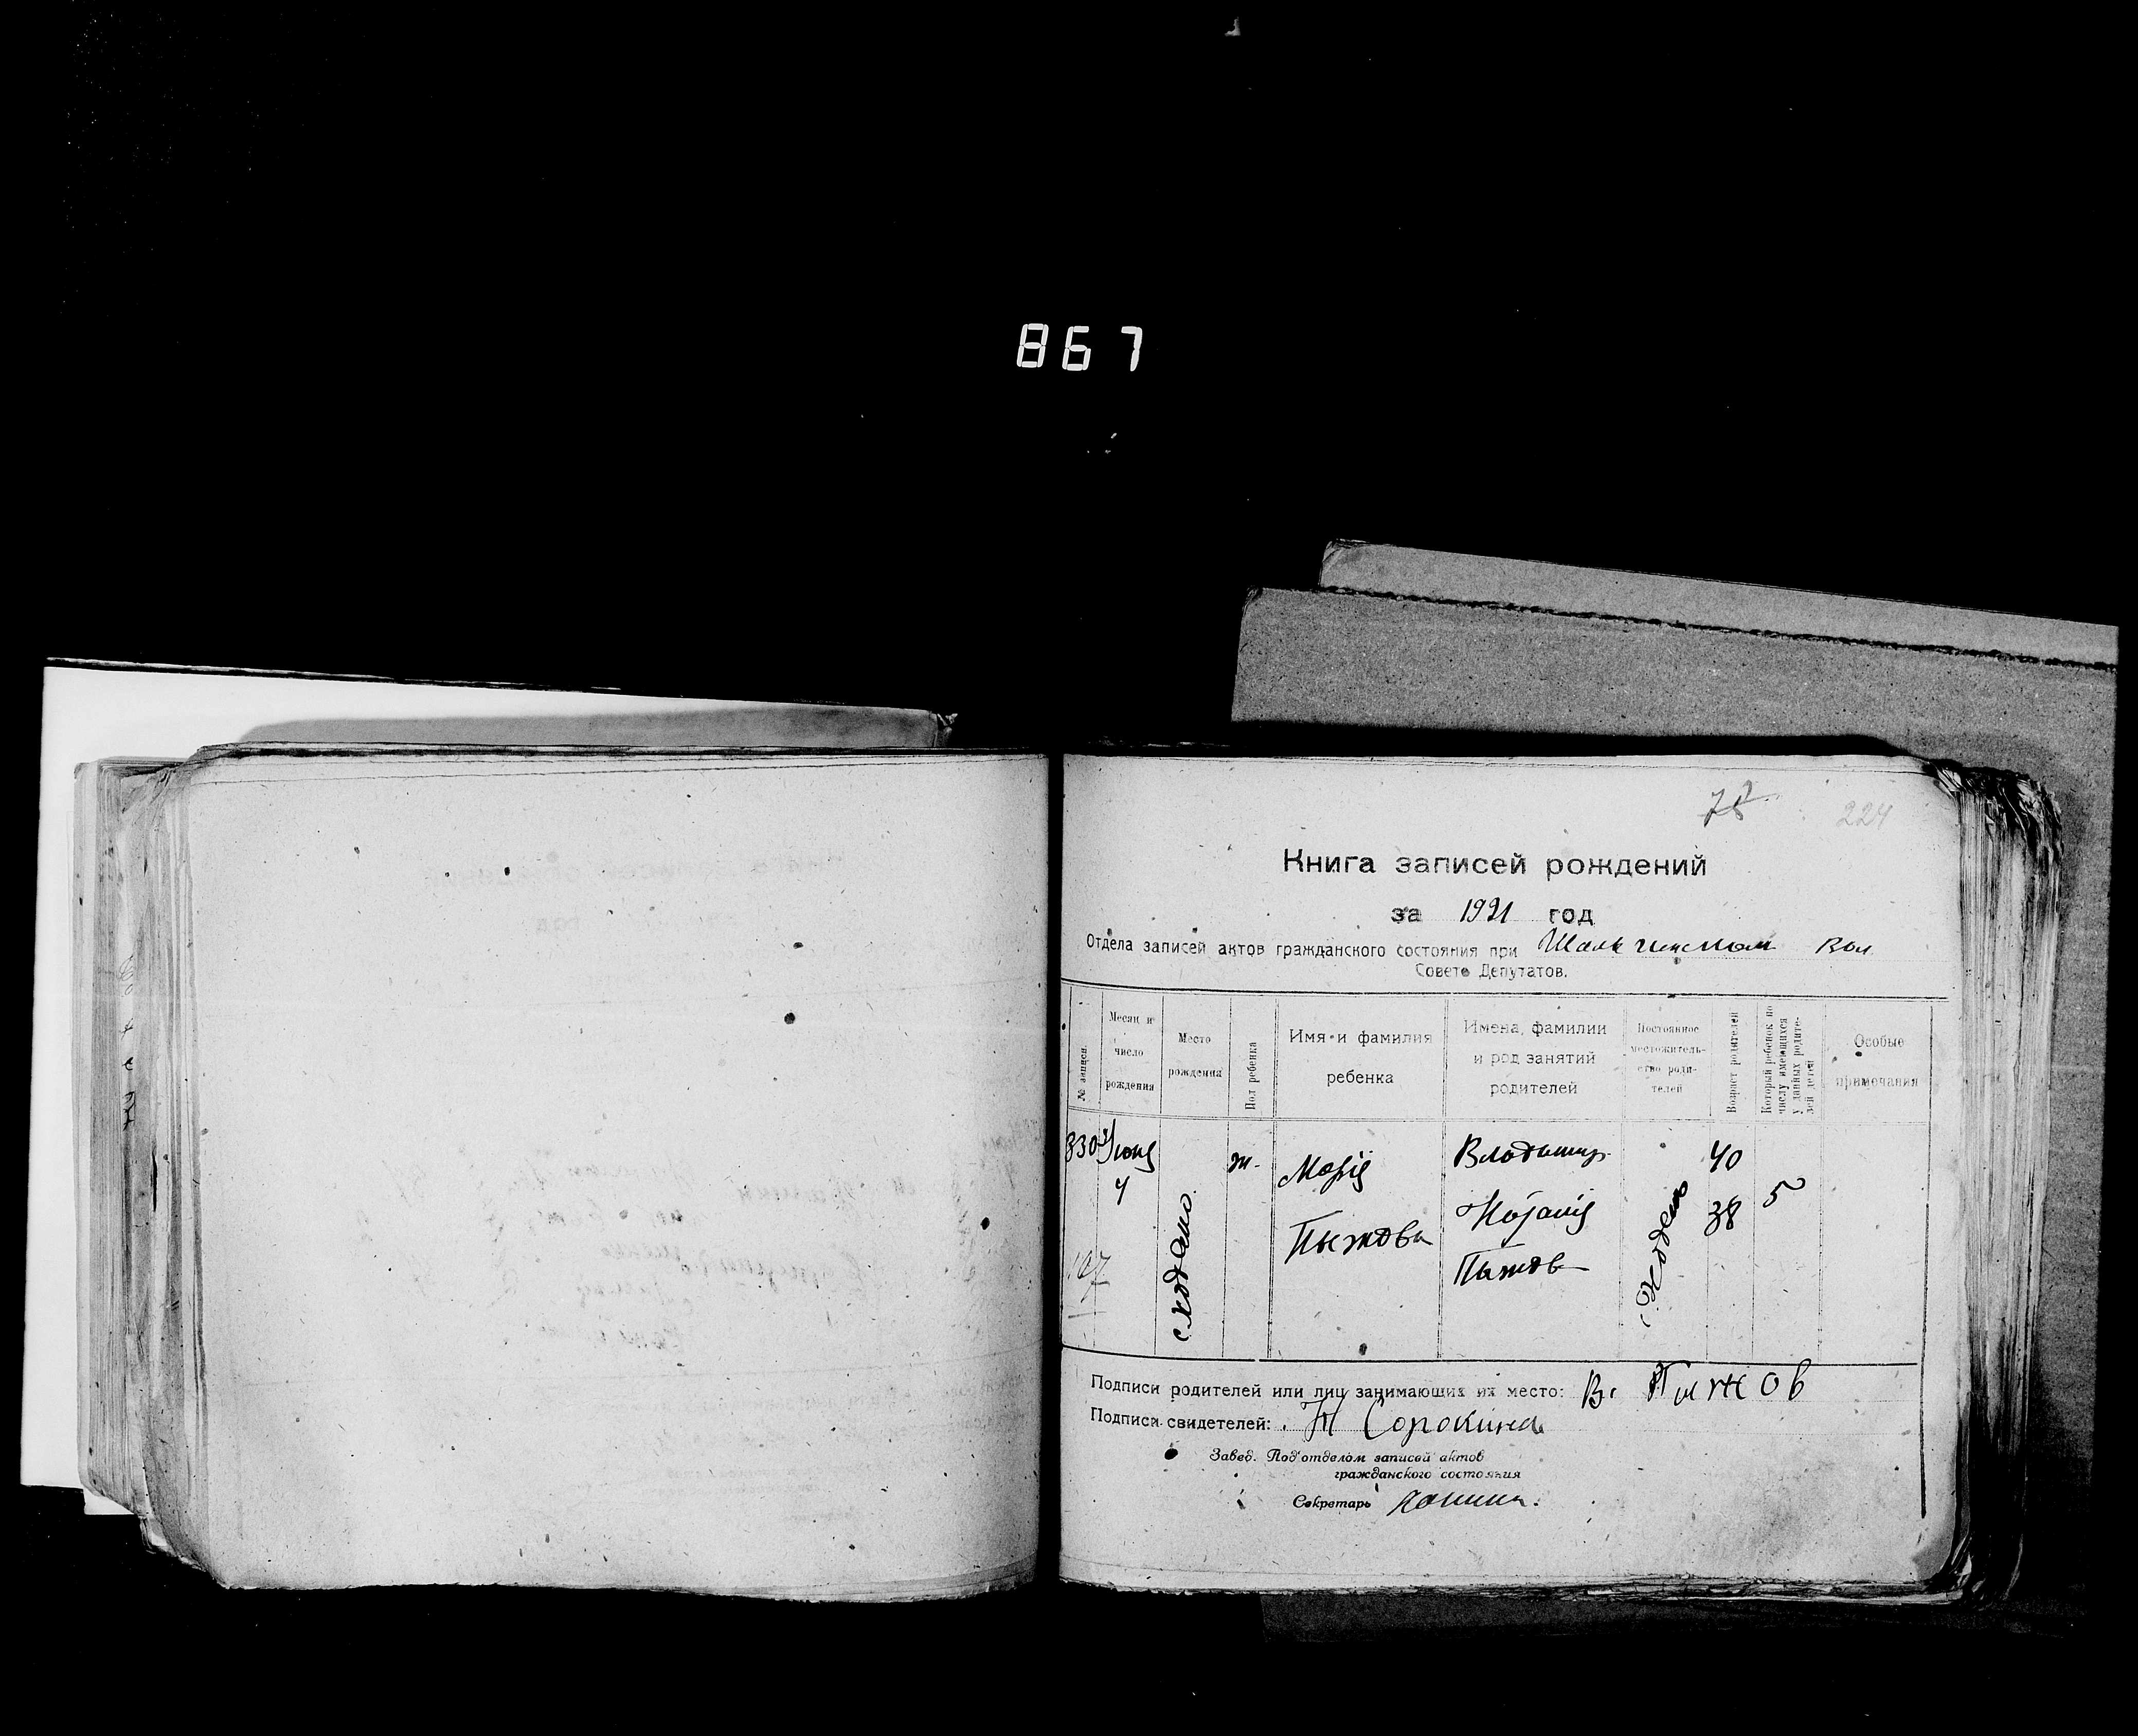 867
78
224
Книга записей рождений
за 1921 год
Отдела записей актов гражданского состояния при Вол
Совете Депутатов.
№ записи.
Месяц и число рождения
Место рождения
Пол ребенка
Имя и фамилия ребенка
Имена, фамилии и род занятий родителей
Постоянное местожительство родителей
Возраст родителей
Который ребенок по числу имеющихся у данных родителей детей
Особые примечания
830
4
ж.
Марія
Пыжова
Владимир
Пыжов
40
38
5
167
Подписи родителей или лиц занимающих их место: В. Пыжов
Подписи свидетелей: Сорокина
Завед. Под'отделом записей актов
гражданского состояния
Секретарь